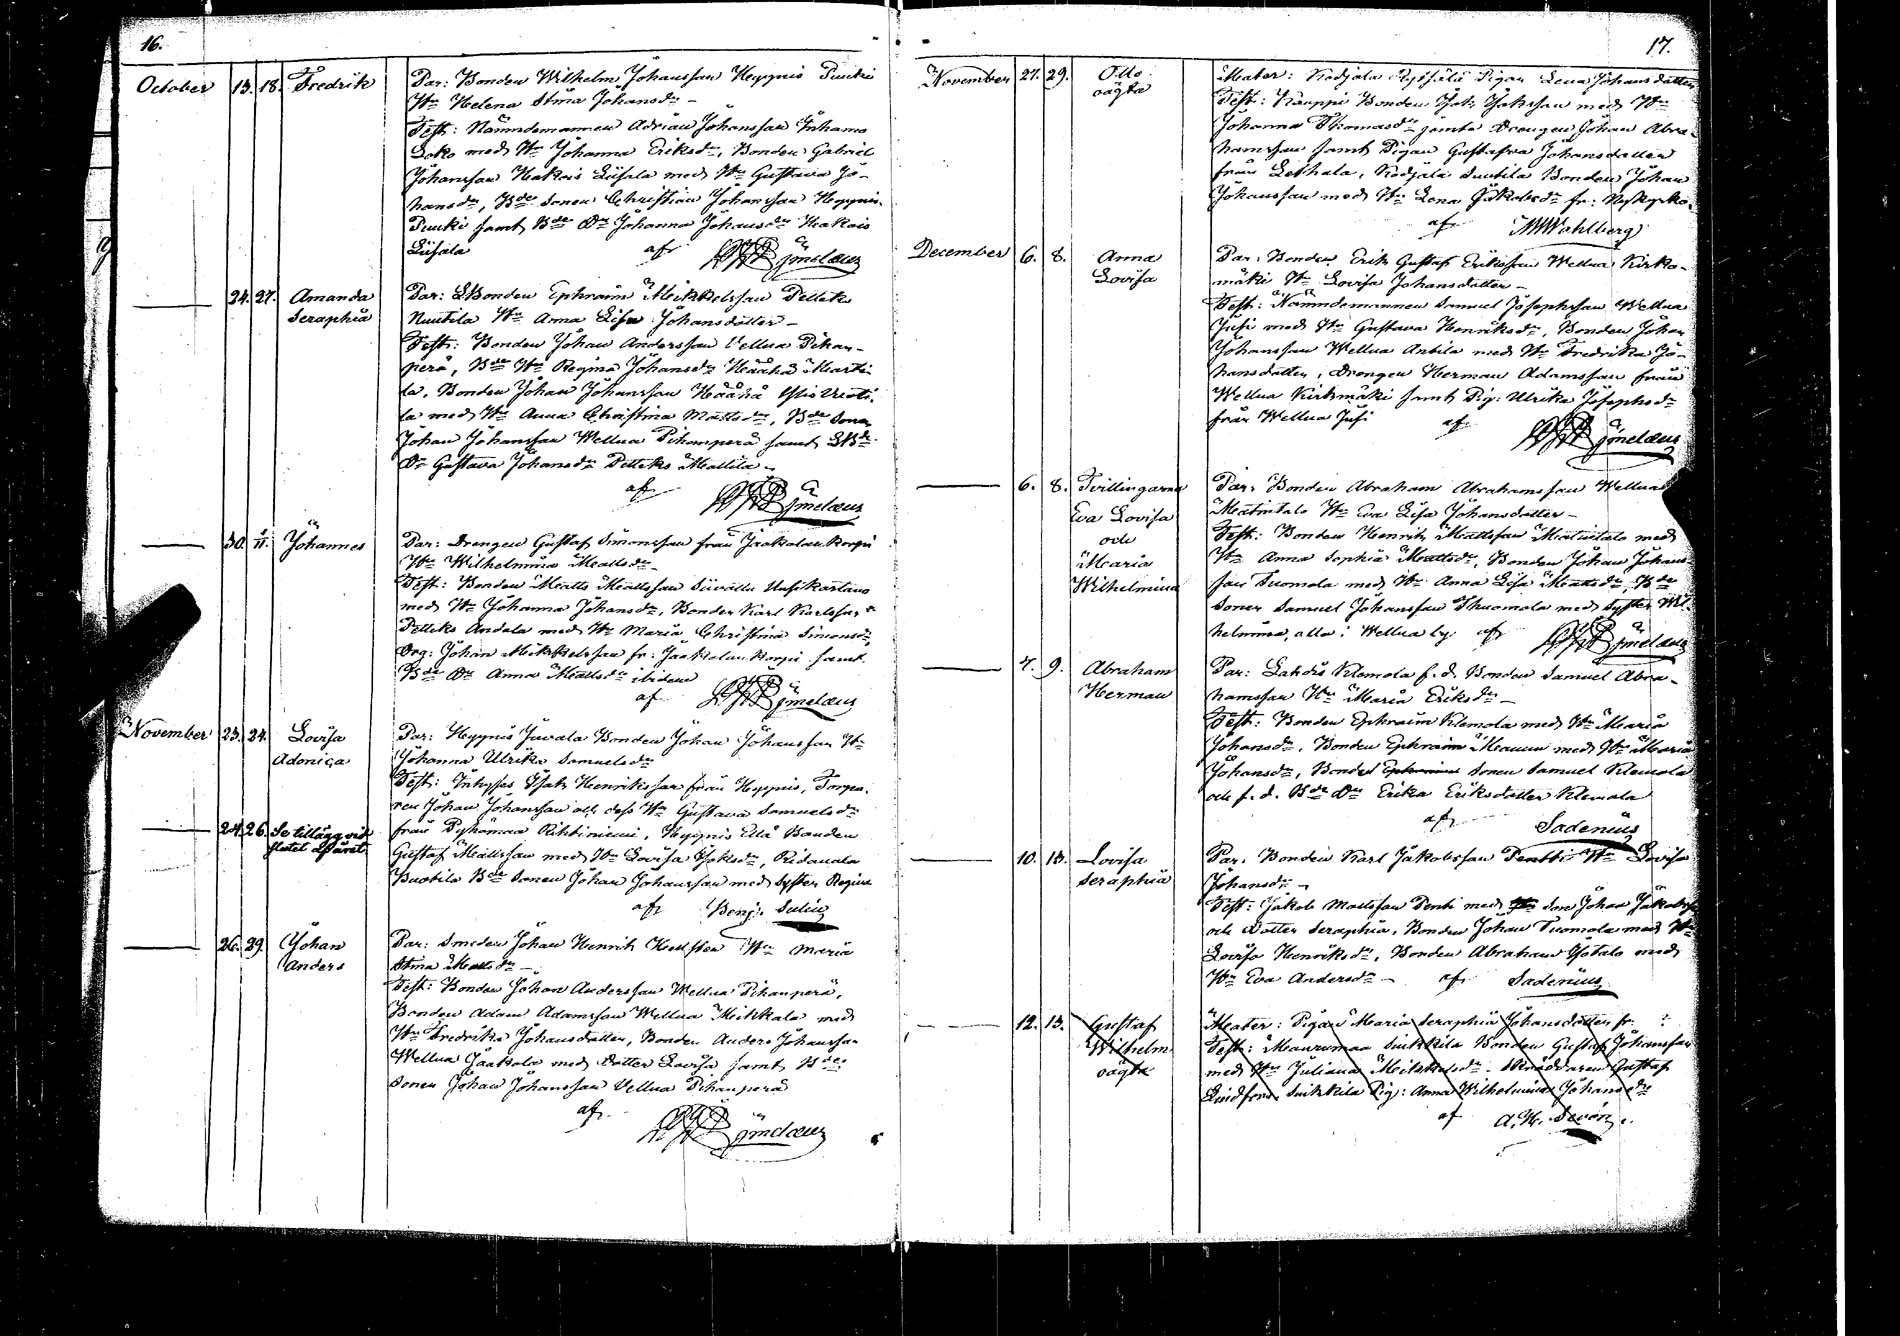 16.
October 13. 18. Fredrik Par: Bonden Wilhelm Johansson Heypnis Punki
Hu Helena Stina Johansdr –
Test: Nämndemannen Adrian Johansson Inhamo
Loko med Hu Johanna Eriksdr, Bonden Gabriel
Johansson Kakois Liisala med Hu Gustava Jo-
hansdr, Bde Sonen Christian Johansson Heypnis
Punki samt Bde Dr Johanna Johansdr Kakois
Liisala af
24. 27. Amanda Seraphia Par: LBonden Ephraim Mickelsson Potteks
Nuutila Hu Anna Lisa Johansdotter –
Test: Bonden Johan Andersson Vellua Pihan-
perä, Bde Hu Regina Johansdr Hääkä Marti-
la, Bonden Johan Johansson Hääkä
la med Hu Anna Christina Mattsdr, Bde Sonen
Johan Johansson Wellua Pihanperä samt LBde
Dr Gustava Johansdr Potteks Mattila –
af
30. 1/11. Johannes Par: Drengen Gustaf Simonsson från Jaakolankorpi
Hu Wilhelmina Mattsdr –
Test: Bonden Matts Mattsson Sirvallu Uusikartano
med Hu Johanna Johansdr, Bonden Karl Karlsson
Potteks Andala med Hu Maria Christina Simonsdr,
Drg: Johan Mickelsson fr: Jaakolankorpi samt
Bde Dr Anna Mattsdr ibidem
af
November 23. 24. Lovisa Adonica Par: Heypnis Juvala Bonden Johan Johansson Hu
Johanna Ulrika Samuelsdr
Test: Inhyses Isak Henriksson från Heypnis, Torpa-
ren Johan Johansson och dess Hu Gustava Samuelsdr
24. 26. Se tillägg vid slutet af året från Pyhämaa Rihtiniemi, Heypnis Eilä Bonden
Gustaf Mattsson med Hu Lovisa Isaksdr, Ridanala
Buotila Bde Sonen Johan Johansson med Syster Regina
af Benj: Sulin
26. 29. Johan Anders Par: Smeden Johan Henrik Hu Maria
Stina Mattsdr –
Test: Bonden Johan Andersson Wellua Pihanperä,
Bonden Adam Adamsson Wellua Mikkala med
Hu Fredrika Johansdotter, Bonden Anders Johansson
Wellua Jaakola med Dotter Lovisa samt Bde
Sonen Johan Johansson Vellua Pihanperä
af
17.
November 27. 29. Otto oägta Mater: Kodjala Pigan Lena Johansdotter
Test: Kauppi Bonden Isak Isaksson med Hu
Johanna Thomasdr jämte Drengen Johan Abra-
hamsson samt Pigan Gustafva Johansdotter
från Lethala, Kodjala Suutila Bonden Johan
Johansson med Hu Lena Jakobsdr fr: Nykyrko.
af Wahlberg
December 6. 8. Anna Lovisa Par: Bonden Erik Gustaf Eriksson Wellua Kirko-
mäki Hu Lovisa Johansdotter –
Test: Nämndemannen Samuel Josephsson Wellua
Jusi med Hu Gustava Henriksdr, Bonden Johan
Johansson Wellua Antila med Hu Fredrika Jo-
hansdotter, Drengen Herman Adamsson från
Wellua Kirkmäki samt Pig: Ulrika Josephsdr
från Wellua Jusi af
6. 8. Tvillingarna Eva Lovisa och Maria Wilhelmina Par: Bonden Abraham Abrahamsson Wellua
Matintalo Hu Eva Lisa Johansdotter –
Test: Bonden Henrik Mattsson Matintalo med
Hu Anna Sophia Mattsdr, Bonden Johan Johans-
son Tuomola med Hu Anna Lisa Mattsdr, Bde
Sonen Samuel Johansson Thuomola med Syster Wil-
helmina, alla i Wellua by af
7. 9. Abraham Herman Par: Lahdis Klemola f.d. Bonden Samuel Abra-
hamsson Hu Maria Eriksdr –
Test: Bonden Ephraim Klemola med Hu Maria
Johansdr, Bonden Ephraim Maunu med Hu Maria
Johansdr, Bonde Ephraims Sonen Samuel Klemola
och f.d. Bde Dr Erika Eriksdotter Klemola
af Sadenius
10. 13. Lovisa Seraphia Par. Bonden Karl Jakobsson Pentti Hu Lovisa
Johansdr –
Test: Jakob Mattsson Penti med Son Johan Jakobsson
och Dotter Seraphia, Bonden Johan Tuomola med Hu
Lovisa Henriksdr, Bonden Abraham Isotalo med
Hu Eva Andersdr – af Sadenius
12. 13. Gustaf Wilhelm oägta Mater: Pigan Maria Seraphia Johansdotter fr:
Test: Maunumaa Suikkila Bonden Gustaf Johansson
med Hu Juliana Mickelsdr – Skräddaren Gustaf
Lindfors Suikkila Pig: Anna Wilhelmina Johansdr
af A. H.